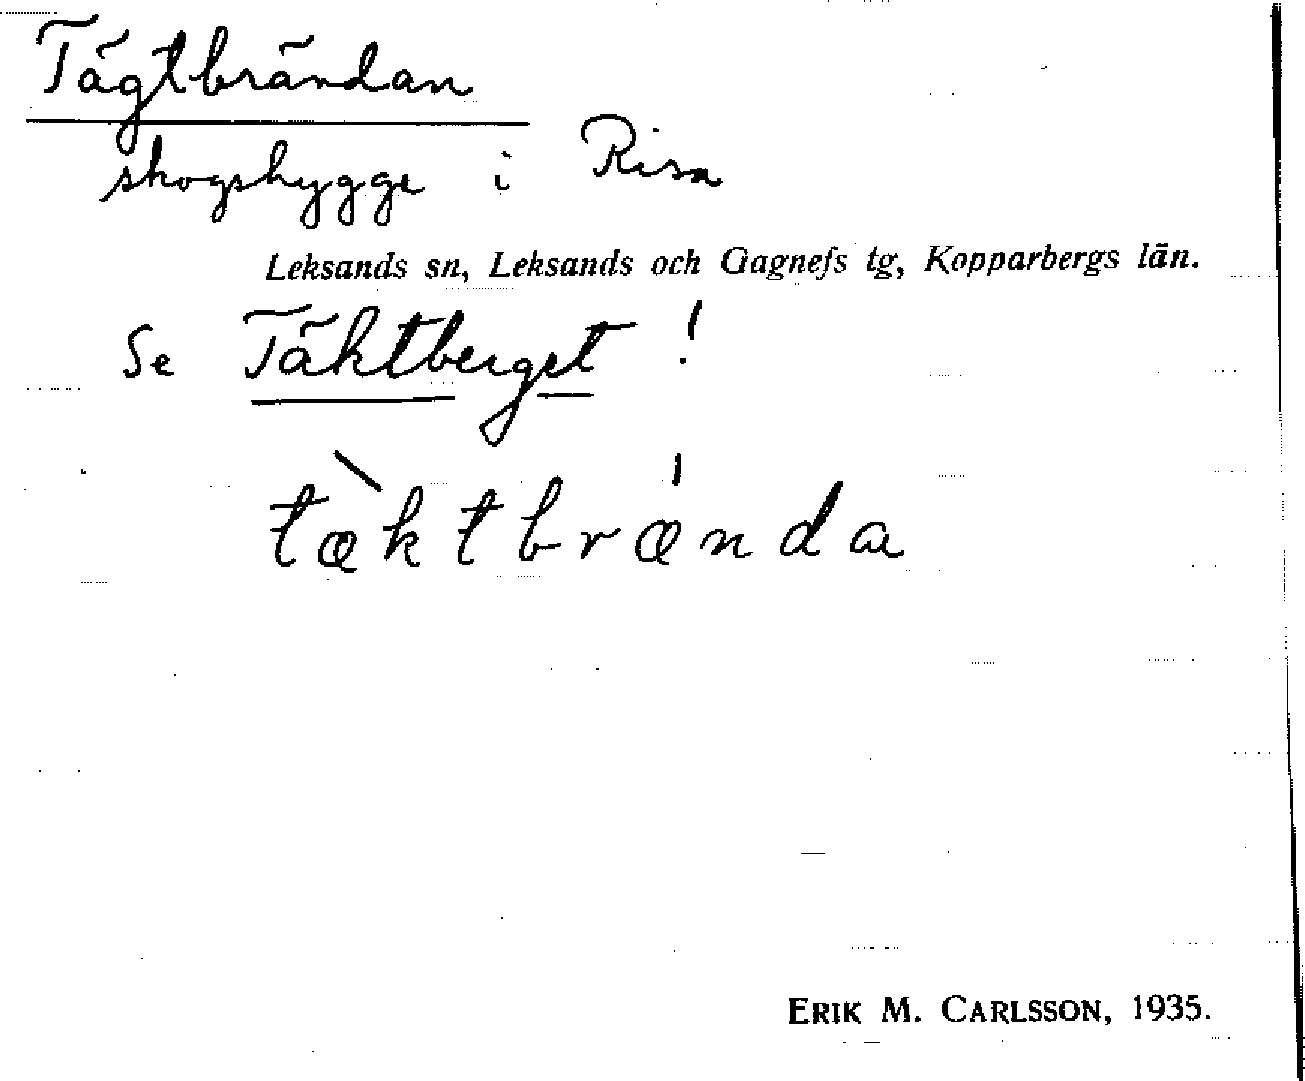 Tägtbrändan
skogshygge i Risa
Leksands sn, Leksands och Gagnefs tg, Kopparbergs län.
Se Täktberget !
tæ̀ktbrǽnda
ERIK M. CARLSSON, 1935.